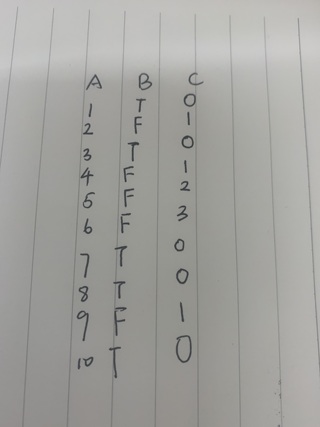 A B C
1 T 0
2 F 1
3 T 0
4 F 1
5 F 2
6 F 3
7 T 0
8 T 0
9 F 1
10 T 0